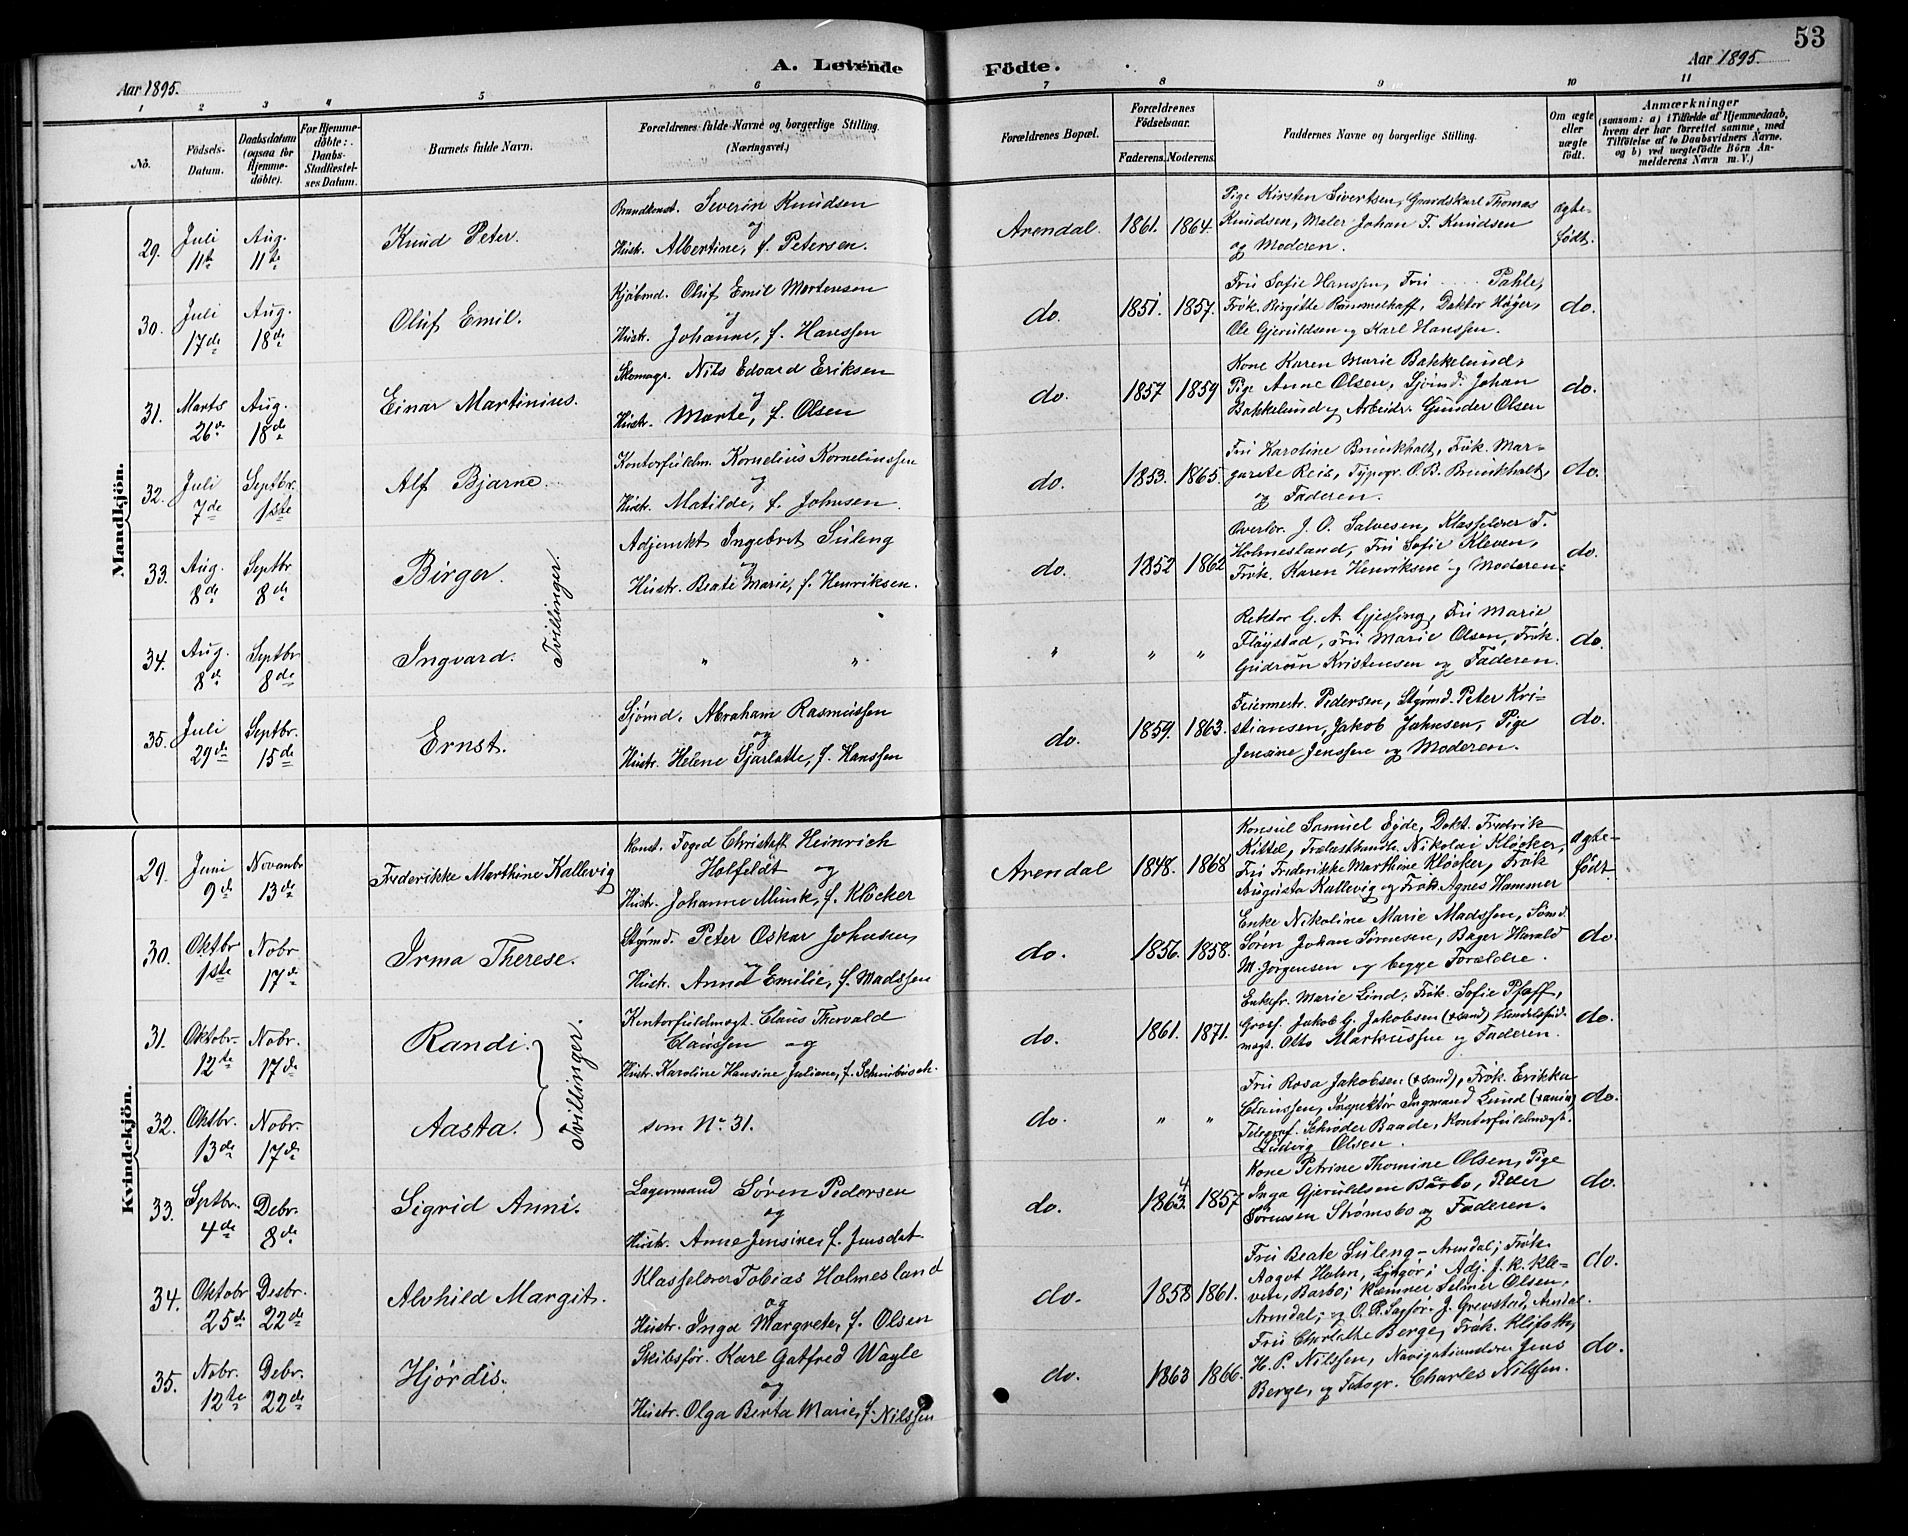 53
Aar 1895.
A. Levende Födte.
Aar 1895.
1 2 3 4 5 6 7 8 9 10 11
No.
Födsels-Datum.
Daabsdatum (ogsaa for Hjemmedöbte).
For Hjemmedöbte: Daabs-Stadfæstelses Datum.
Barnets fulde Navn.
Forældrenes fulde Navne og borgerlige Stilling. (Næringsvei.)
Forældrenes Bopæl.
Forældrenes Födselsaar.
Faderens. Moderens.
Faddernes Navne og borgerlige Stilling.
Om ægte eller uægte født.
Anmærkninger
(saasom: a) i Tilfælde af Hjemmedaab, hvem der har forrettet samme, med Tilföielse af to Daabsvidners Navne. og b) ved uægtefödte Börn Anmelderens Navn m. V.)
Mandkjön.
29. Juli 11te Aug. 11te
Knud Peter.
Brandkonst. Severin Knudsen
og
Hustr. Albertine, f. Petersen.
Arendal. 1861. 1864.
Pige Kirsten Sivertsen, Gaardskarl Thomas
Knudsen, Maler Johan F. Knudsen
og Moderen.
ægte-født.
30. Juli 17de Aug. 18de
Oluf Emil.
Kjøbmd. Oluf Emil Mortensen
og
Hustr. Johanne, f. Hanssen
do. 1851. 1857.
Fru Sofie Hanssen, Fru ...... Pahle,
Frøk. Birgitte Rømmelhoff, Doktor Høyer,
Ole Gjeruldsen og Karl Hanssen.
do.
31. Marts 26de Aug. 18de
Einar Martinius.
Skomagr. Nils Edvard Eriksen
og
Hustr. Marte, f. Olsen
do. 1857 1859
Kone Karen Marie Bakkelund,
Pige Anne Olsen, Sjømd. Johan
Bakkelund og Arbeidr. Gunder Olsen
do.
32. Juli 7de Septbr. 1ste
Alf Bjarne.
Kontorfuldm. Kornelius Korneliussen
og
Hustr. Matilde, f. Johnsen.
do. 1853. 1865.
Fru Karoline Brunkhalt, Frøk. Mar-
garete Reis, Typogr. O. B. Brunkhalt,
og Faderen.
do.
33. Aug. 8de Septbr 8de
Birger.
Tvilinger.
Adjunkt Ingebret Suleng
og
Hustr. Beate Marie, f. Henriksen.
do. 1852 1862
Overlør. J. O. Salvesen, Klasselærer T.
Holmesland, Fru Sofie Kleven,
Frøk. Karen Henriksen og Moderen.
do.
34. Aug. 8de Septbr 8de
Ingvard.
" "
" " "
Rektor G. A. Gjessing, Fru Marie
Fløystad, Fru Marie Olsen, Frøk.
Gudrun Kristensen og Faderen.
do.
35. Juli 29de Septbr. 15de
Ernst.
Sjømd. Abraham Rasmussen
og
Hustr. Helene Sjarlotte, f. Hanssen
do. 1859. 1863.
Feiermestr. Pedersen, Styrmd. Peter Kri-
stiansen, Jakob Johnsen, Pige
Jensine Jenssen og Moderen.
do.
Kvindekjön.
29. Juni 9de Novembr 13de
Frederikke Marthine Kallevig
Konst. Foged Christoff Heinrich
Holfeldt og
Hustr. Johanne Munk, f. Kløcker
Arendal 1848. 1868
Konsul Samuel Eyde, Dokt. Fredrik
Kittel, Trælasthandl. Nikolai Kløcker,
Fru Frederikke Marthine Kløcker, Frøk
Augusta Kallevig og Frøk. Agnes Hammer
ægte-født.
30. Oktbr. 1ste Nobr. 17de
Irma Therese.
Styrmd. Peter Oskar Johnsen,
og
Hustr. Anna Emilie, f. Madssen
do. 1856. 1858.
Enke Nikoline Marie Madssen, Sømd.
Søren Johan Sørensen, Bager Harald
M. Jørgensen og begge Forældre.
do.
31. Oktobr. 12te Nobr. 17de
Randi.
Tvillinger.
Kontorfuldmægt. Claus Thorvald
Claussen og
Hustr. Karoline Hansine Juliane, f. Schnibusch.
do. 1861. 1871.
Enkefr. Marie Lind, Frøk. Sofie Pfaff,
Gross. Jakob G. Jakobsen (Xsand) Handelsfuld-
mægt. Otto Markussen og Faderen.
do.
32. Oktbr. 13de Nobr. 17de
Aasta.
som No. 31.
do. " "
Fru Rosa Jakobsen (Xsand), Frøk. Erikka
Claussen, Inspektør Ingmand Lund (Xania)
Telegraf. Schrøder Baade, Kontorfuldmægt.
Ludvig Olsen.
do.
33. Septbr. 4de Debr. 8de
Sigrid Anni.
Lagermand Søren Pedersen
og
Hustr. Anne Jensine, f. Jensdat.
do. 18634. 1857
Kone Petrine Thomine Olsen, Pige
Inga Gjeruldsen Barbo, Peder
Sørensen Strømsbo og Faderen.
do.
34. Oktobr 25de Desbr. 22de
Alvhild Margit.
Klasselærer Tobias Holmesland
og
Hustr. Inga Margrete, f. Olsen
do. 1858 1861.
Fru Beate Suleng - Arendal; Frøk.
Aagot Holm, Lyngør; Adj. J. K. Kle-
ven, Barbo; Kæmner Selmer Olsen,
Arendal; og O. R. Sagfør. J. Grevstad, Arendal.
do.
35. Nobr. 12te Debr. 22de
Hjørdis.
Skibsfør. Karl Gotfred Wayle
og
Hustr. Olga Berta Marie, f. Nilssen
do. 1863 1866.
Fru Charlotte Berge, Frøk. Klifoth,
H. P. Nilssen, Navigationslærer Jens
Berge, og Fotogr. Charles Nilssen.
do.